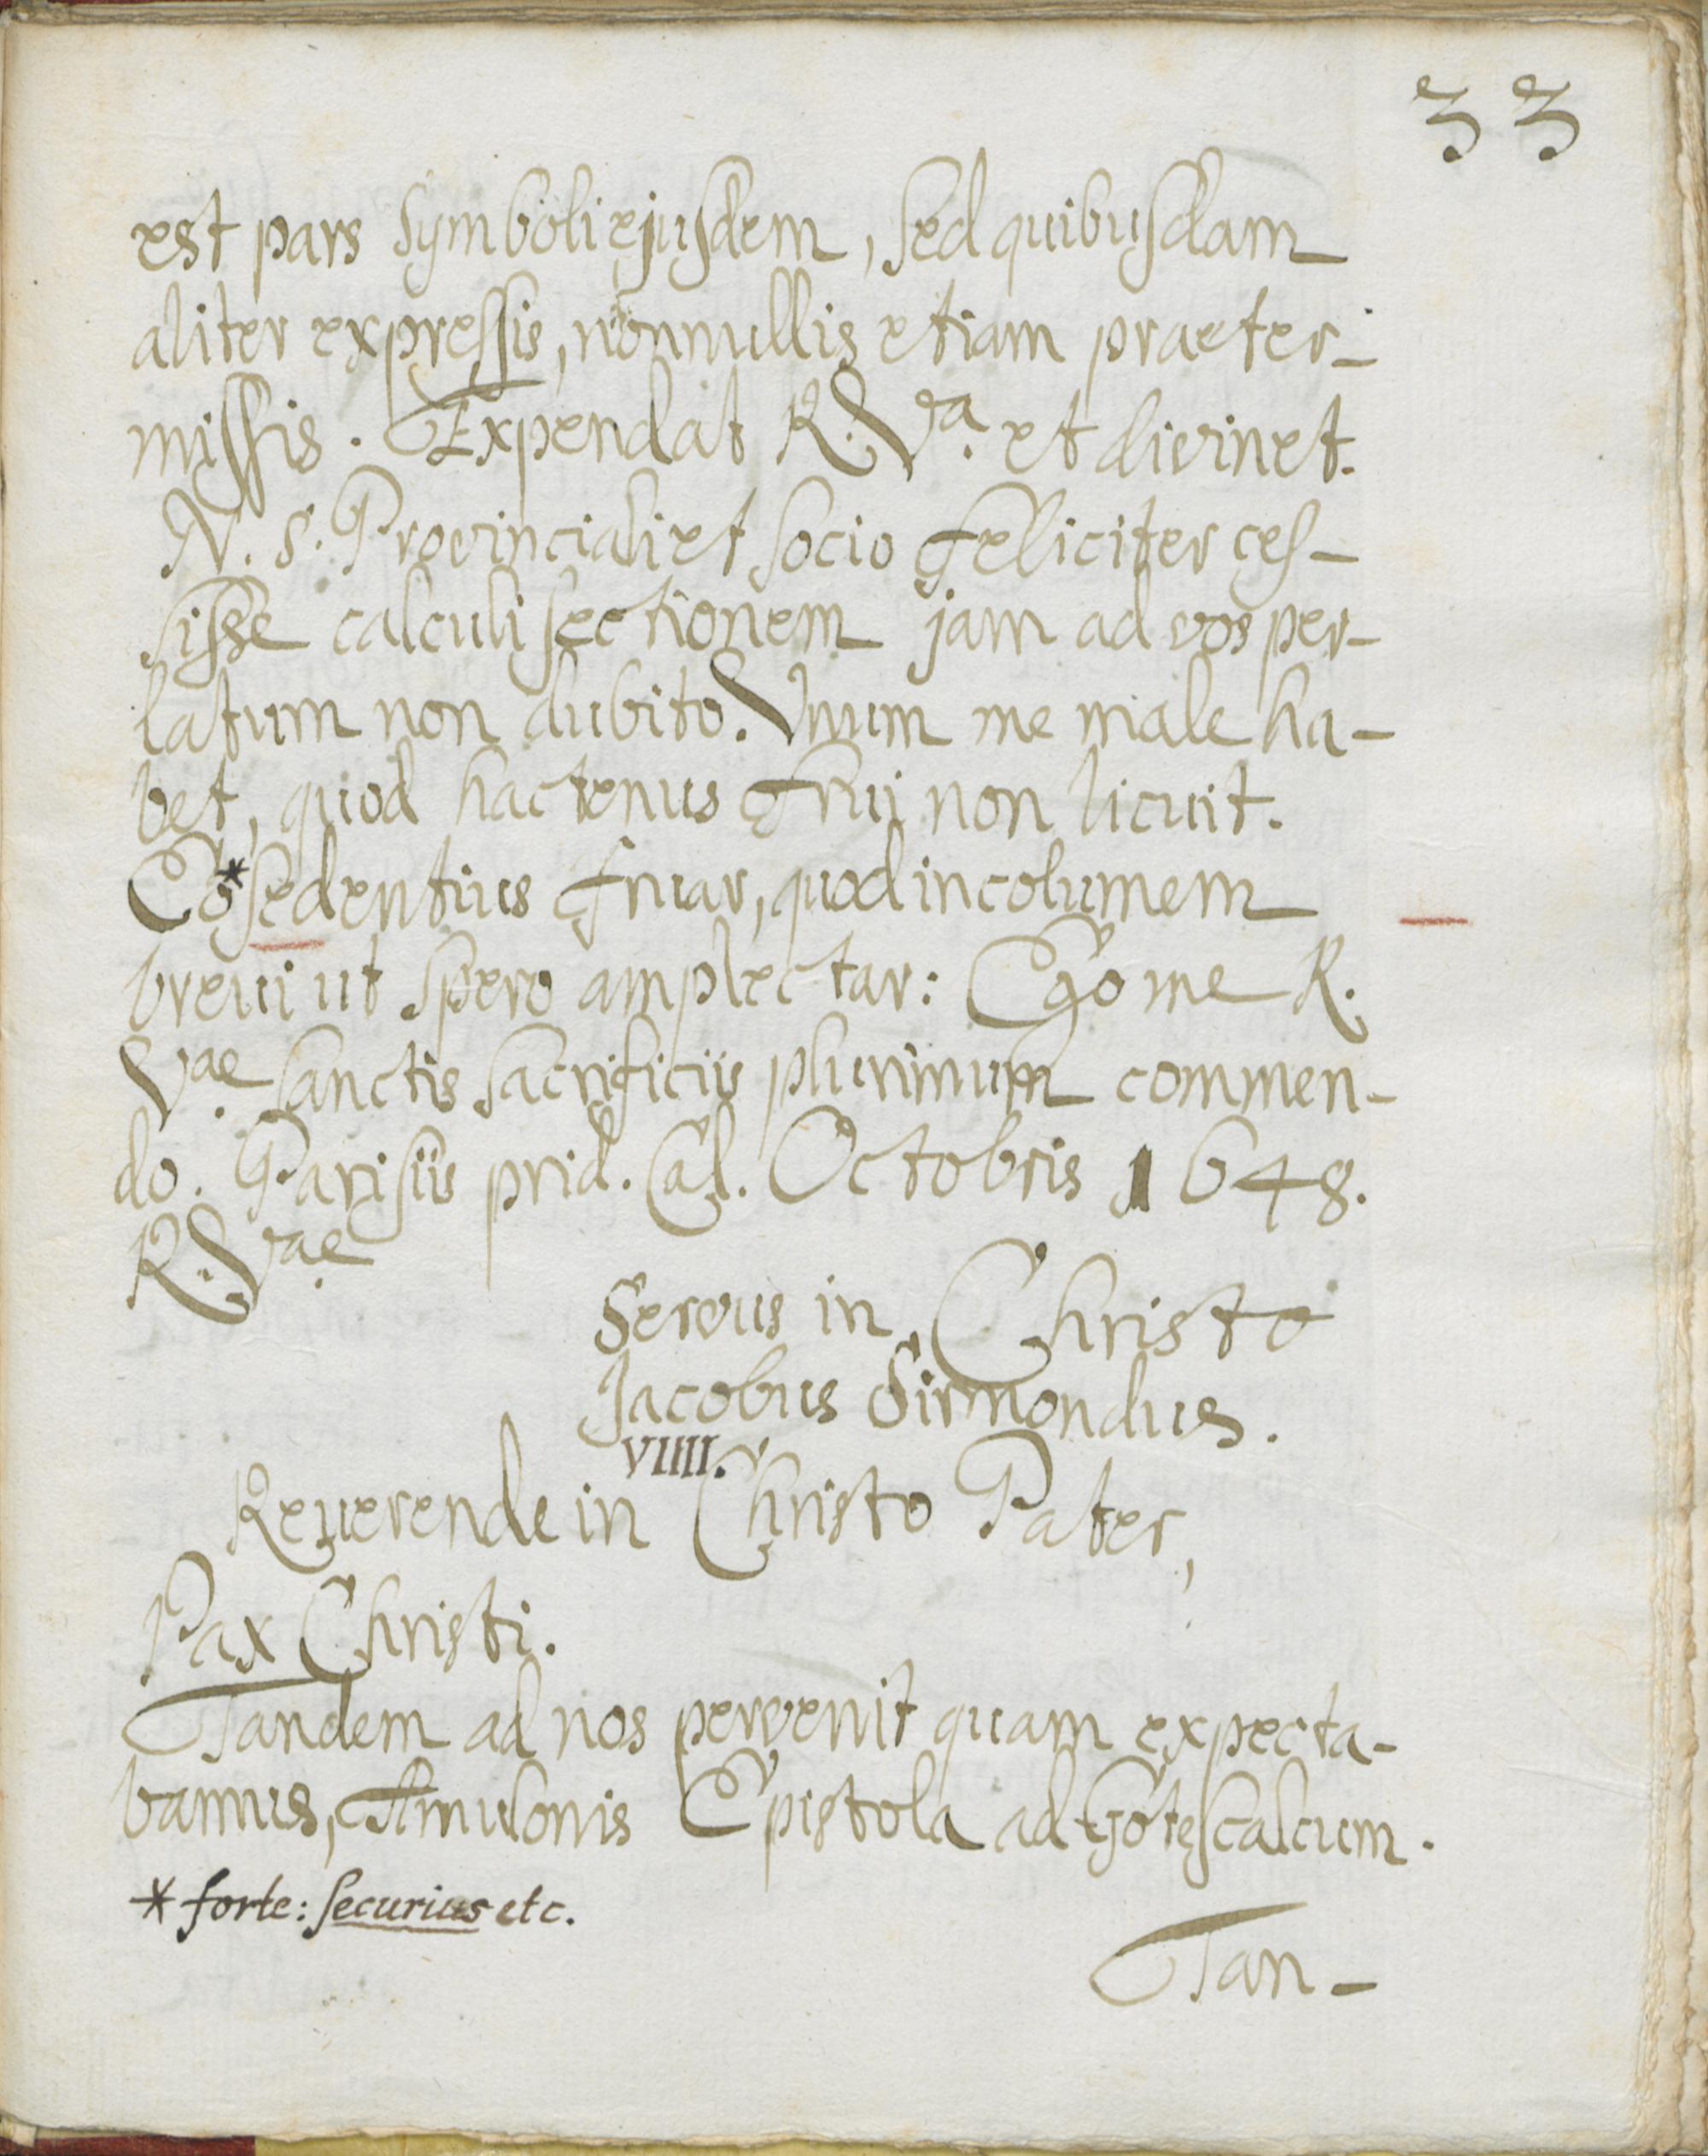 33
est pars symboli ejusdem, sed quibusdam
aliter expressis, nonnullis etiam praeter-
missis. Expendat R. Va. et divinet.
N. S. Provinciali et socio feliciter ces-
sisse calculi sectionem jam ad vos per-
latum non dubito. Vnum me male ha-
bet, quod hactenus frui non licuit.
Eo* sedentius fruar, quod incolumem
breui ut spero amplectar: Ego me R.
Vae. sanctis sacrificiis plurimum commen-
do. Parisiis prid. Cal. Octobris 1648.
R. Vae.
Servus in Christo
Jacobus Sirmondus.
VIIII.
Reuerende in Christo Pater,
Pax Christi.
Tandem ad nos pervenit quam expecta-
bamus, Amulonis Epistola ad Gotescalcum.
* forte: securius etc.
Tan-